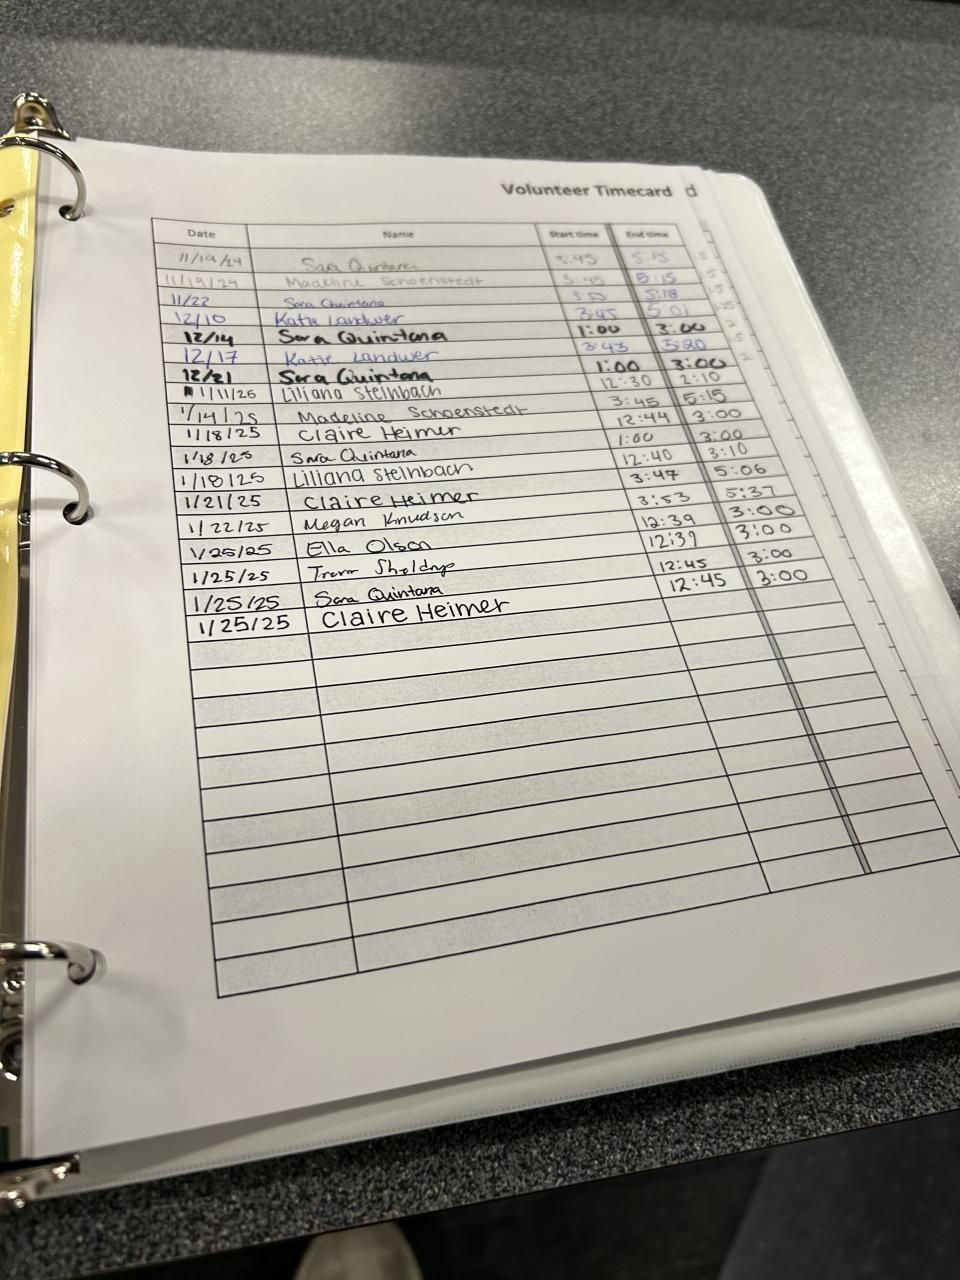 Volunteer Timecard d
Date Name Start time End time
11/19/24 Sara Quintana 3:45 5:15 1.5
11/19/24 Madeline Schoenstedt 3:45 5:15 1.5
11/22 Sara Quintana 3:53 5:18 1.5
12/10 Katie Landwer 3:45 5:01 1.25
12/14 Sara Quintana 1:00 3:00 2
12/17 Katie Landwer 3:43 5:20
12/21 Sara Quintana 1:00 3:00 2
1/11/25 Liliana Steinbach 12:30 2:10
1/14/25 Madeline Schoenstedt 3:45 5:15
1/18/25 Claire Heimer 12:44 3:00
1/18/25 Sara Quintana 1:00 3:00
1/18/25 Liliana Steinbach 12:40 3:10
1/21/25 Claire Heimer 3:47 5:06
1/22/25 Megan Knudson 3:53 5:37
1/25/25 Ella Olson 12:39 3:00
1/25/25 Trevor 12:39 3:00
1/25/25 Sara Quintana 12:45 3:00
1/25/25 Claire Heimer 12:45 3:00